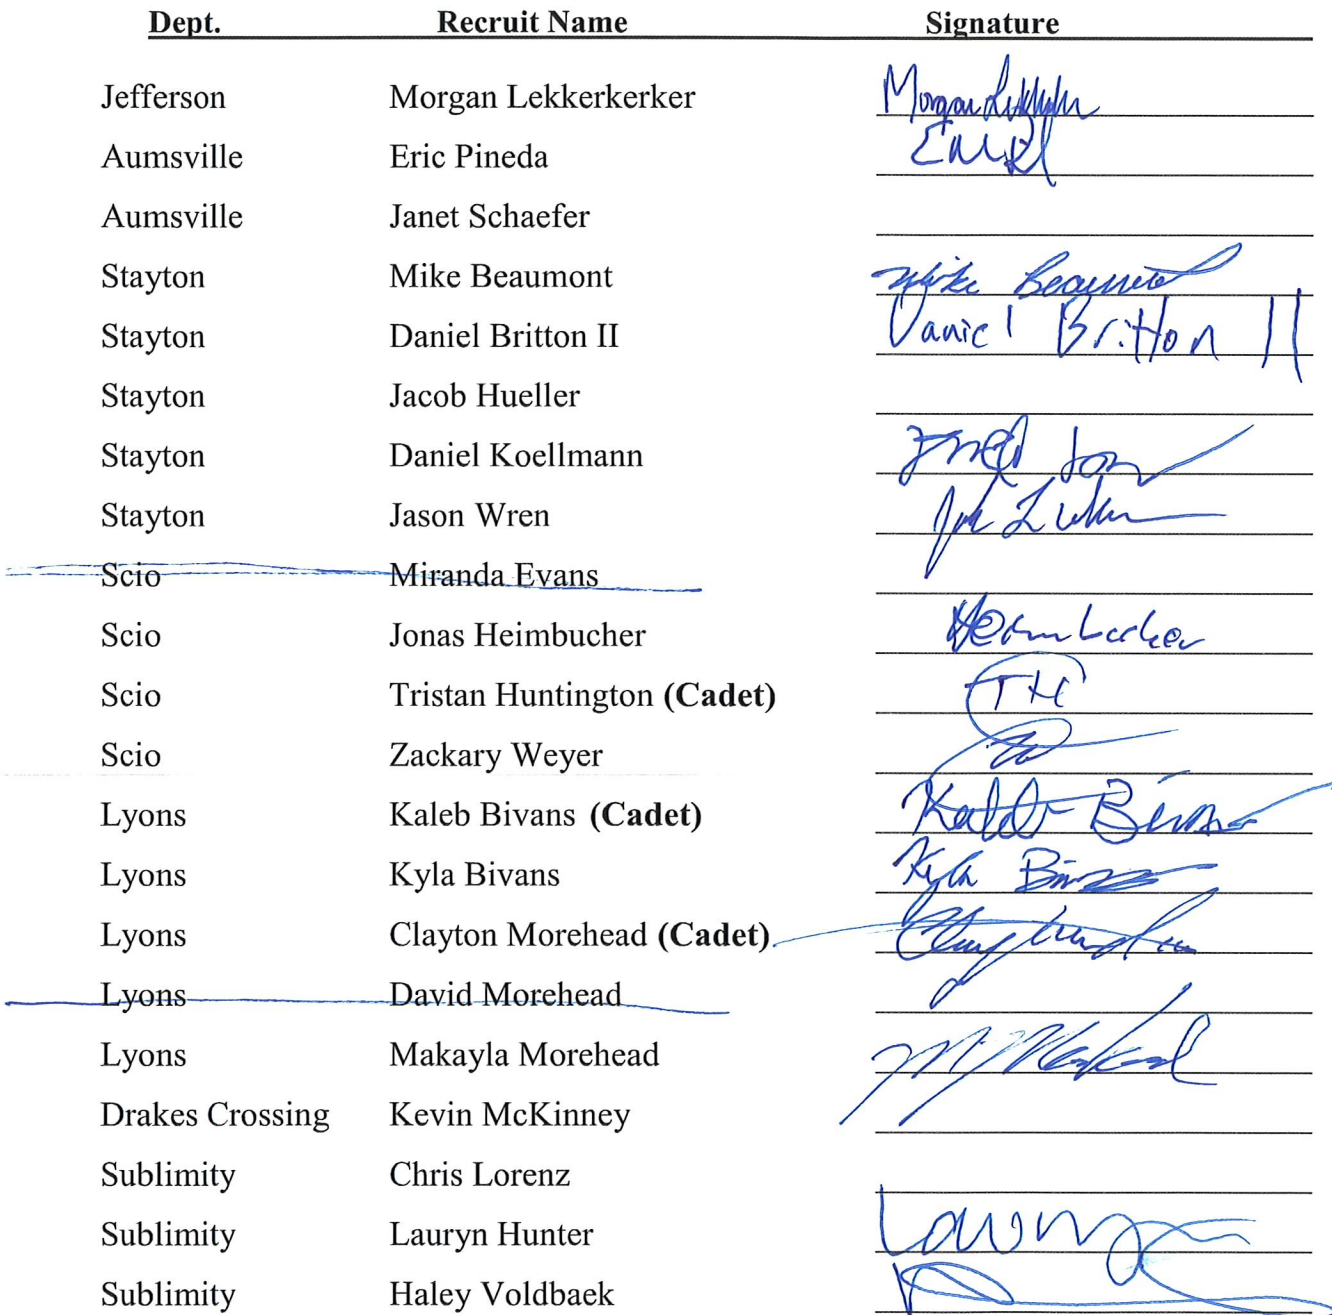 Dept. Recruit Name Signature
Jefferson Morgan Lekkerkerker Morgan
Aumsville Eric Pineda
Aumsville Janet Schaefer
Stayton Mike Beaumont Mike Beaumont
Stayton Daniel Britton II Daniel Britton II
Stayton Jacob Hueller
Stayton Daniel Koellmann
Stayton Jason Wren
Scio Miranda Evans
Scio Jonas Heimbucher
Scio Tristan Huntington (Cadet) TH
Scio Zackary Weyer
Lyons Kaleb Bivans (Cadet) Kaleb Bivans
Lyons Kyla Bivans Kyla Bivans
Lyons Clayton Morehead (Cadet)
Lyons David Morehead
Lyons Makayla Morehead
Drakes Crossing Kevin McKinney
Sublimity Chris Lorenz
Sublimity Lauryn Hunter
Sublimity Haley Voldbaek